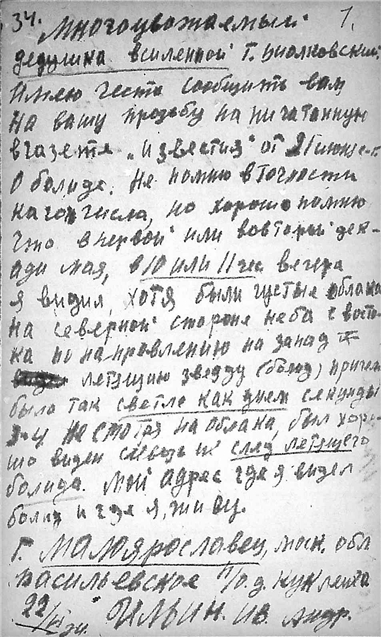 34. Многоуважаемый 1.
дедушка вселенной Т. Циолковский.
Имею честь сообщить вам
на вашу прозьбу напичатанную
в газете „известия" от
о болиде. Не помню в точности
какого числа, но хорошо помню
что в первой или во вторый дек-
ади мая, в 10 или 11 час вечера
я видил, хотя были густые облака
на северной стороне неба с восто-
ка по направлению на запад
летящию звезду (болид) причем
было так светло как днем секунды
3-4 не смотря на облака, был хоро-
шо виден сквозь не след летящего
болида. Мой адрес где я видел
болид и где я живу.
г. Малоярославец, моск. обл
Васильевское п/о д.
22/VI 34. Ильин Ив. Андр.